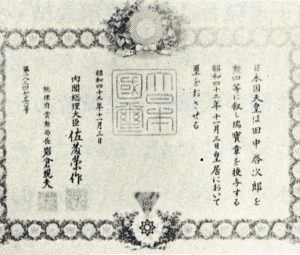 日本国天皇は田中啓次郎を
勲四等に叙し瑞寶章を授与する
昭和四十三年十一月三日皇居において
璽をおさせる
大日本
國璽
昭和四十三年十一月三日
内閣総理大臣 佐藤榮作
総理府賞勲局長 岩倉規夫